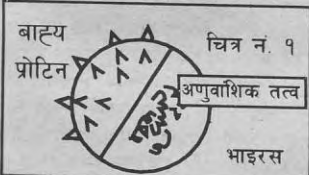 बाह्य
प्रोटिन
चित्र नं. १
अणुवाशिक तत्व
भाइरस